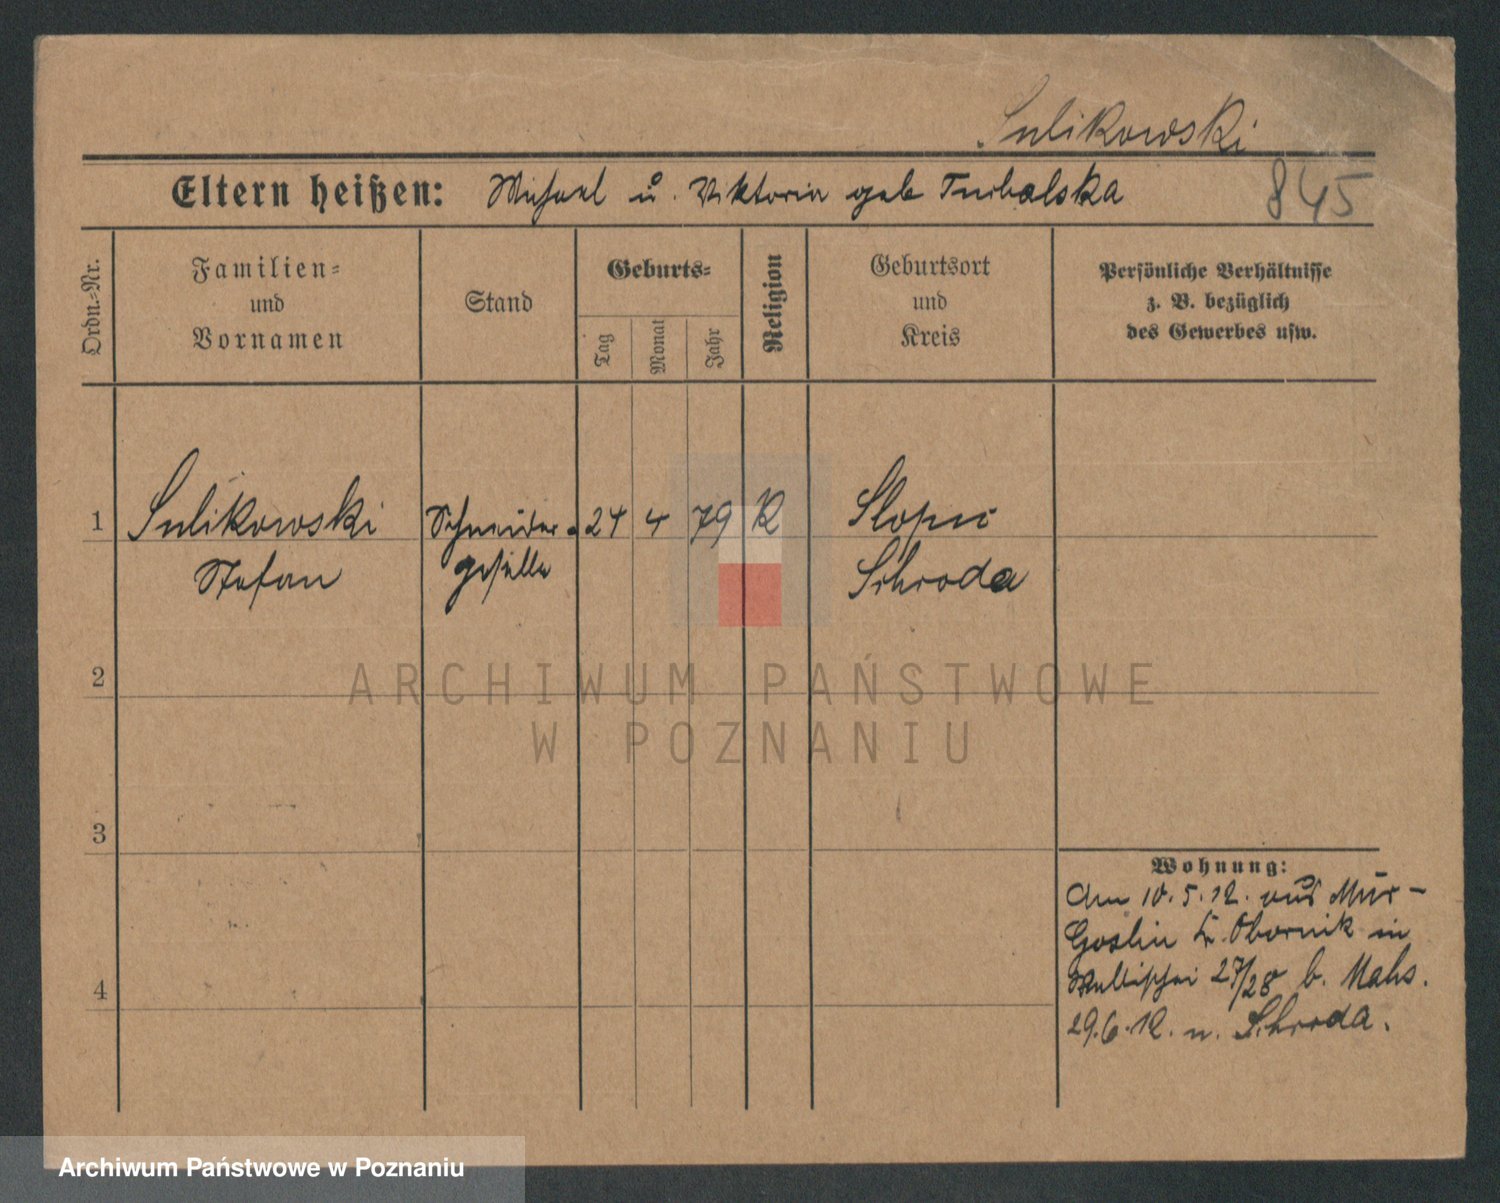 Sulikowski
Eltern heißen: Michael u. Viktoria geb Turbalska
845
Ordn.-Nr.
Familien-
und
Vornamen
Stand
Geburts-
Tag
Monat
Jahr
Religion
Geburtsort
und
Kreis
Persönliche Verhältnisse
z. B. bezüglich
des Gewerbes usw.
1
Sulikowski
Stefan
Schneider-
geselle
24
4
79
K
Slopic
Schroda
2
3
4
Wohnung:
Am 10.5.12. aus Mur-
Goslin Kr. Obornik in
27/28 b. Mahs.
29.6.12. n. Schroda.
ARCHIWUM PAŃSTWOWE
W POZNANIU
Archiwum Państwowe w Poznaniu